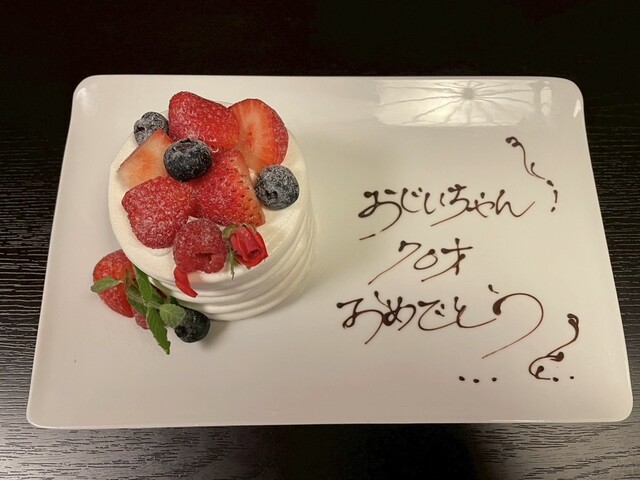 おじいちゃん
70才
おめでとう